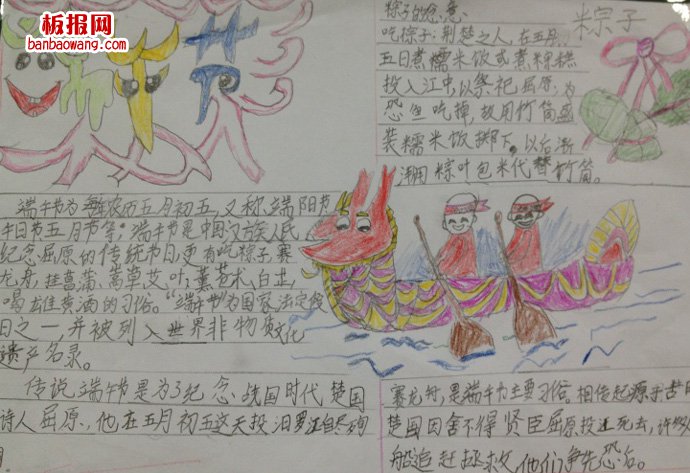 板报网
banbaowang.com
端午节
粽子的
粽子
吃粽子：荆楚之人，在五月
五日煮糯米饭或煮粽糕
投入江中，以祭祀屈原，为
恐 吃掉，故用竹筒盛
装糯米饭掷下，以后渐
用粽叶包米代替竹筒。
端午节为每年农历五月初五，又称端阳节
午日节五月节等。端午节是中国汉族人民
纪念屈原的传统节日，更有吃粽子赛
龙舟，挂菖蒲、蒿草艾叶，薰苍术、白芷，
喝雄黄酒的习俗。“端午节”为国家法定假
日之一，并被列入世界非物质文化
遗产名录。
传说端午节是为了纪念战国时代楚国
诗人屈原，他在五月初五这天投汨罗江自尽殉
赛龙舟，是端午节主要习俗。相传起源于古
楚国因舍不得贤臣屈原投江死去，许多
船追赶拯救他们争先恐后。